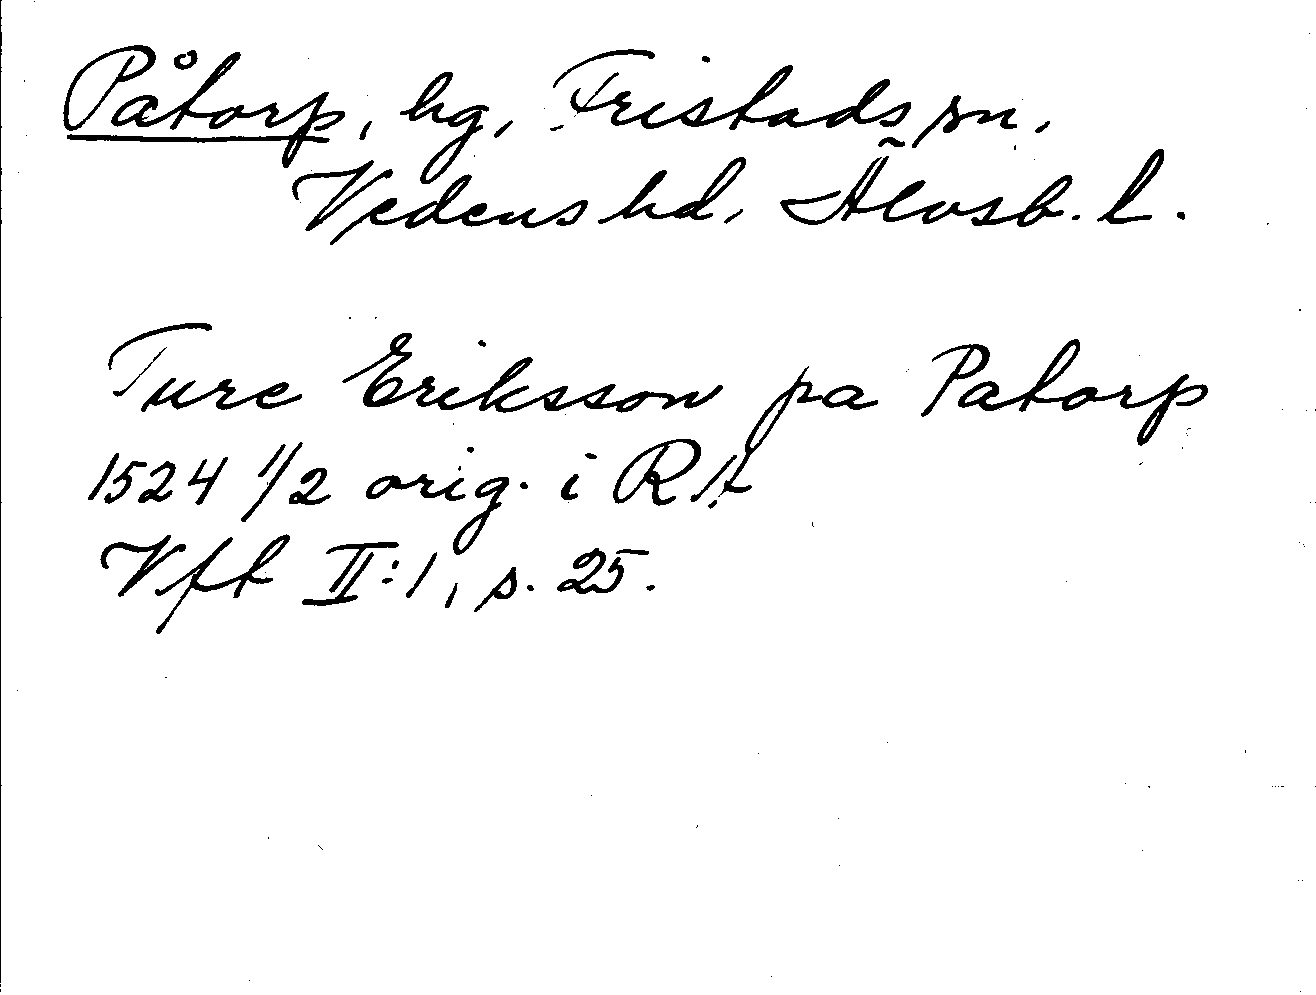 Påtorp, hg, Fristads sn,
Vedens hd, Älvsb. l.
Ture Eriksson pa Patorp
1524 1/2 orig. i RA
Vft II:1, s. 25.